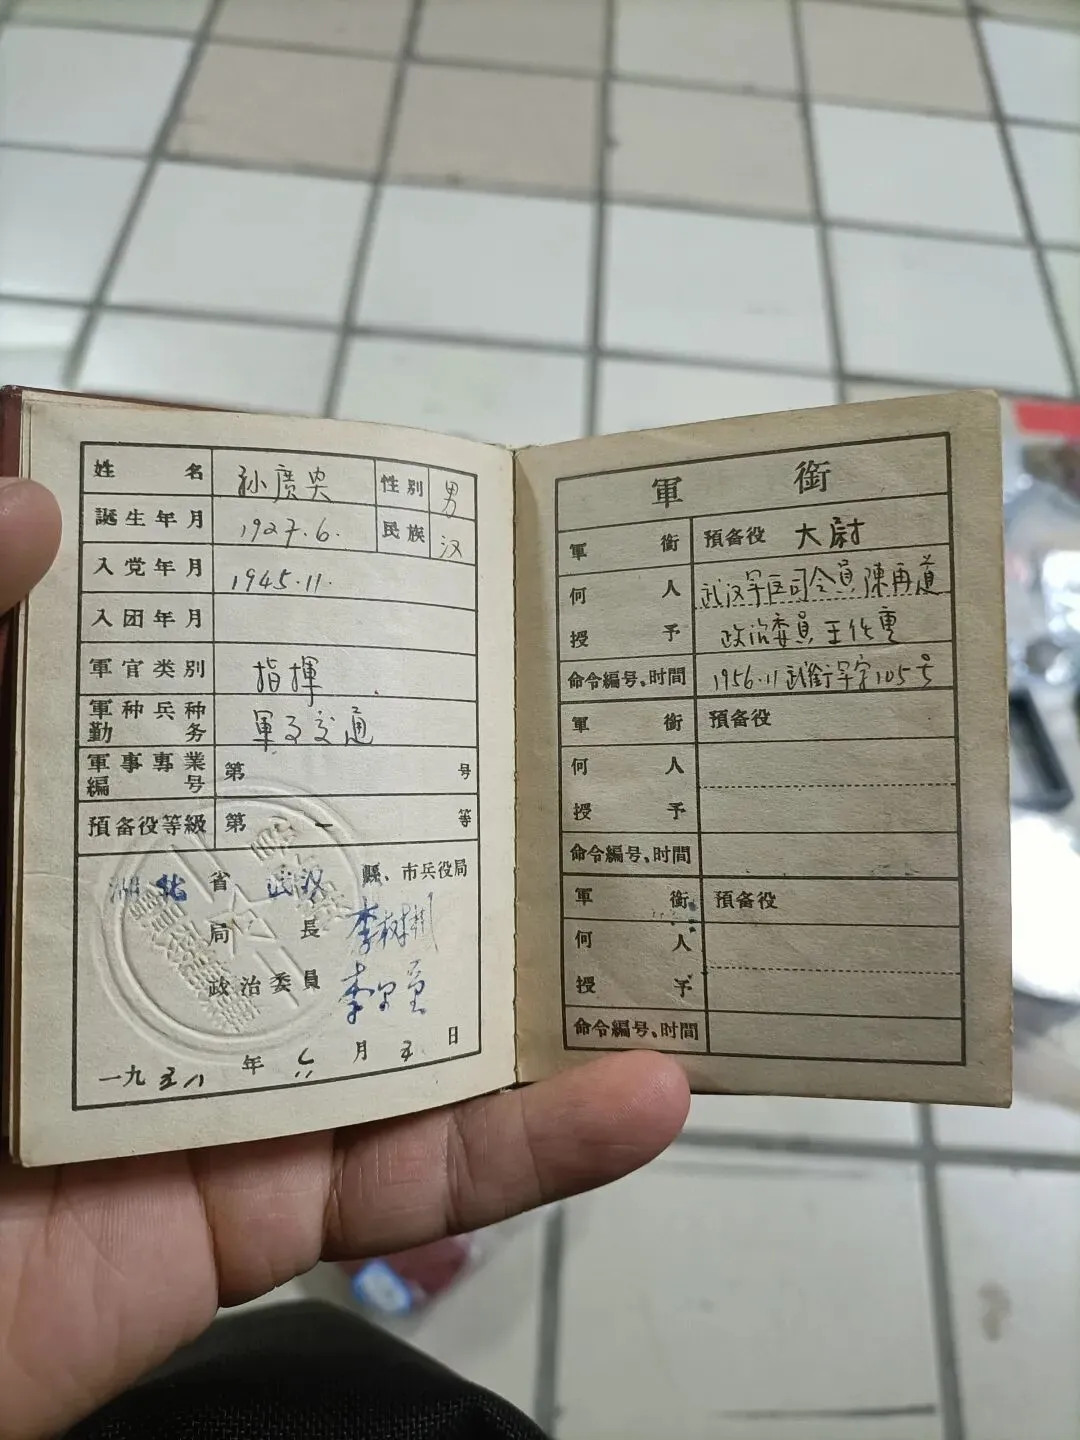 姓名 孙廣央 性别 男
誕生年月 1927.6. 民族 汉
入党年月 1945.11.
入团年月
軍官类别 指揮
軍种兵种勤务 軍交通
軍事專業編号 第 号
預备役等級 第一等
湖北省武汉縣、市兵役局
局長 李树
政治委員 李
一九五八年 月五日
軍銜
軍銜 預备役 大尉
何人 武汉军区司令員陳再道
授予 政治委員王任重
命令編号、时間 1956.11武銜字105号
軍銜 預备役
何人
授予
命令編号、时間
軍銜 預备役
何人
授予
命令編号、时間